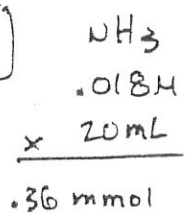 NH3
.018M
x 20mL
.36 mmol